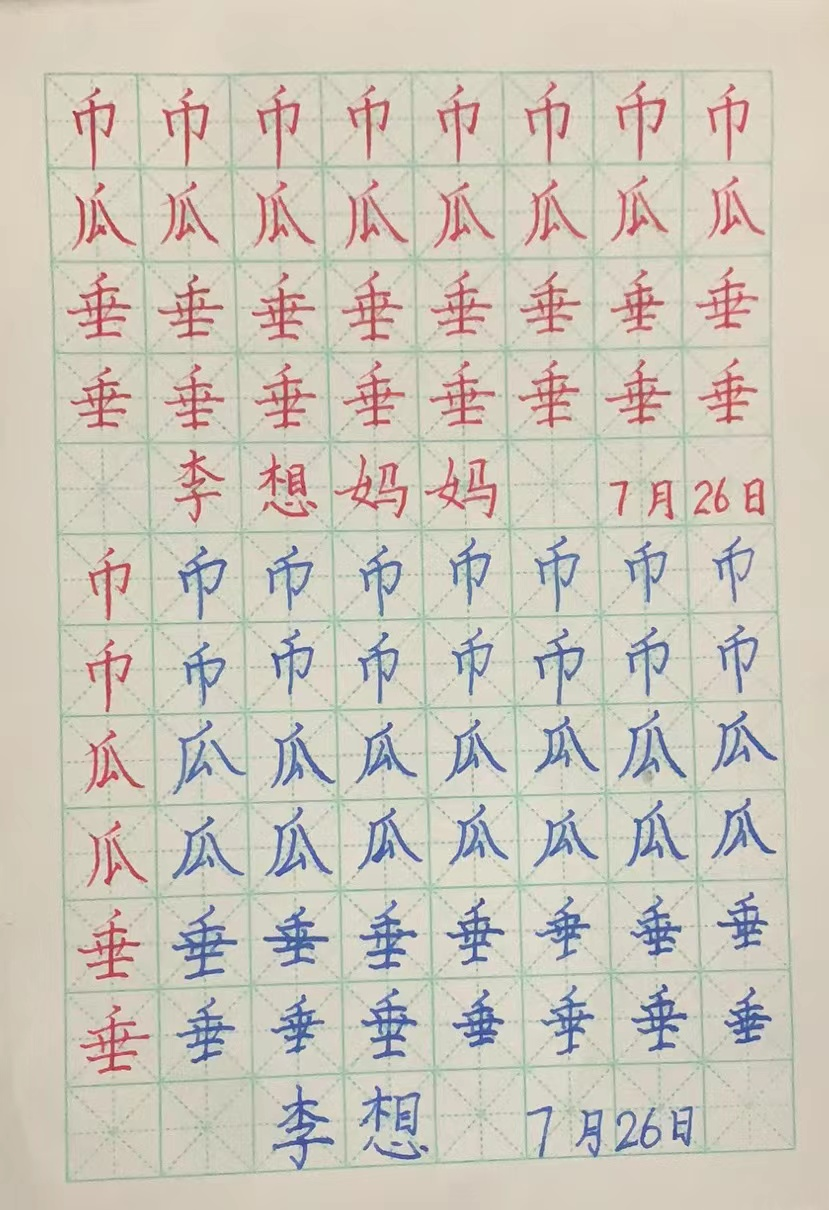 币币币币币币币币
瓜瓜瓜瓜瓜瓜瓜瓜
垂垂垂垂垂垂垂垂
垂垂垂垂垂垂垂垂
李想妈妈 7月26日
币币币币币币币币
币币币币币币币币
瓜瓜瓜瓜瓜瓜瓜瓜
瓜瓜瓜瓜瓜瓜瓜瓜
垂垂垂垂垂垂垂垂
垂垂垂垂垂垂垂垂
李想 7月26日